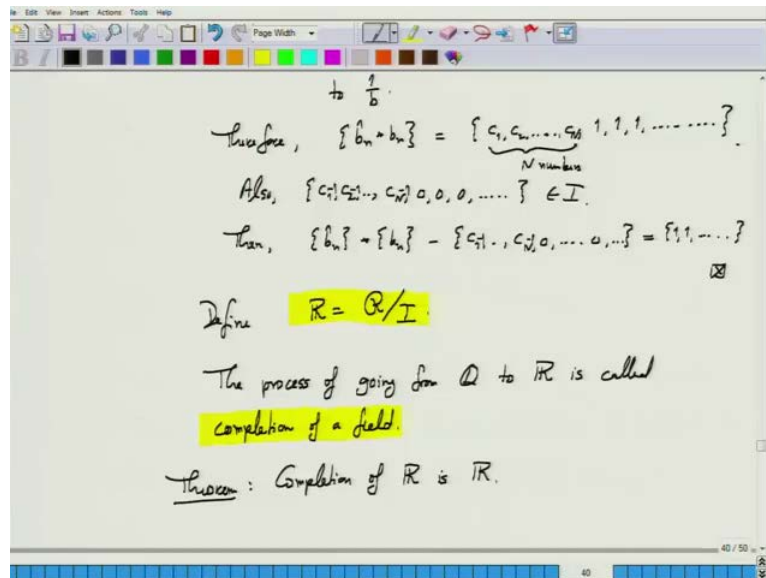 le Edit View Insert Actions Tools Help
Page Width
to 1/b.
Therefore, {b̂n * bn} = {c1, c2, ...., cN, 1, 1, 1, ..... ....}.
N numbers
Also, {c1-1, c2-1, .., cN-1, 0, 0, 0, .....} ∈ I.
Then, {b̂n} * {bn} - {c1-1, .., cN-1, 0, .... 0, ...} = {1, 1, ....}
Define R = R/I.
The process of going from Q to R is called
completion of a field.
Theorem : Completion of R is R.
40 / 50
40